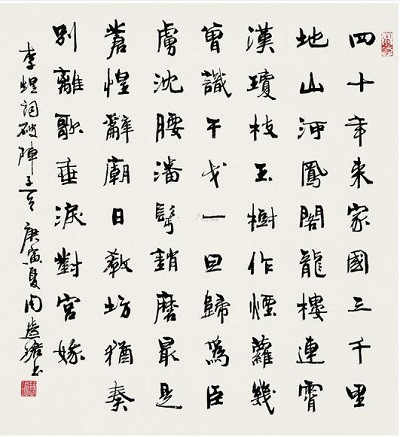 四十年来家國三千里
地山河鳳閣龍樓連霄
漢瓊枝玉樹作煙蘿幾
曾識干戈一旦歸爲臣
虜沈腰潘鬢銷磨最是
蒼惶辭廟日教坊猶奏
別離歌垂淚對宮娥
李煜詞破陣子一首 庚寅夏周慧珺書